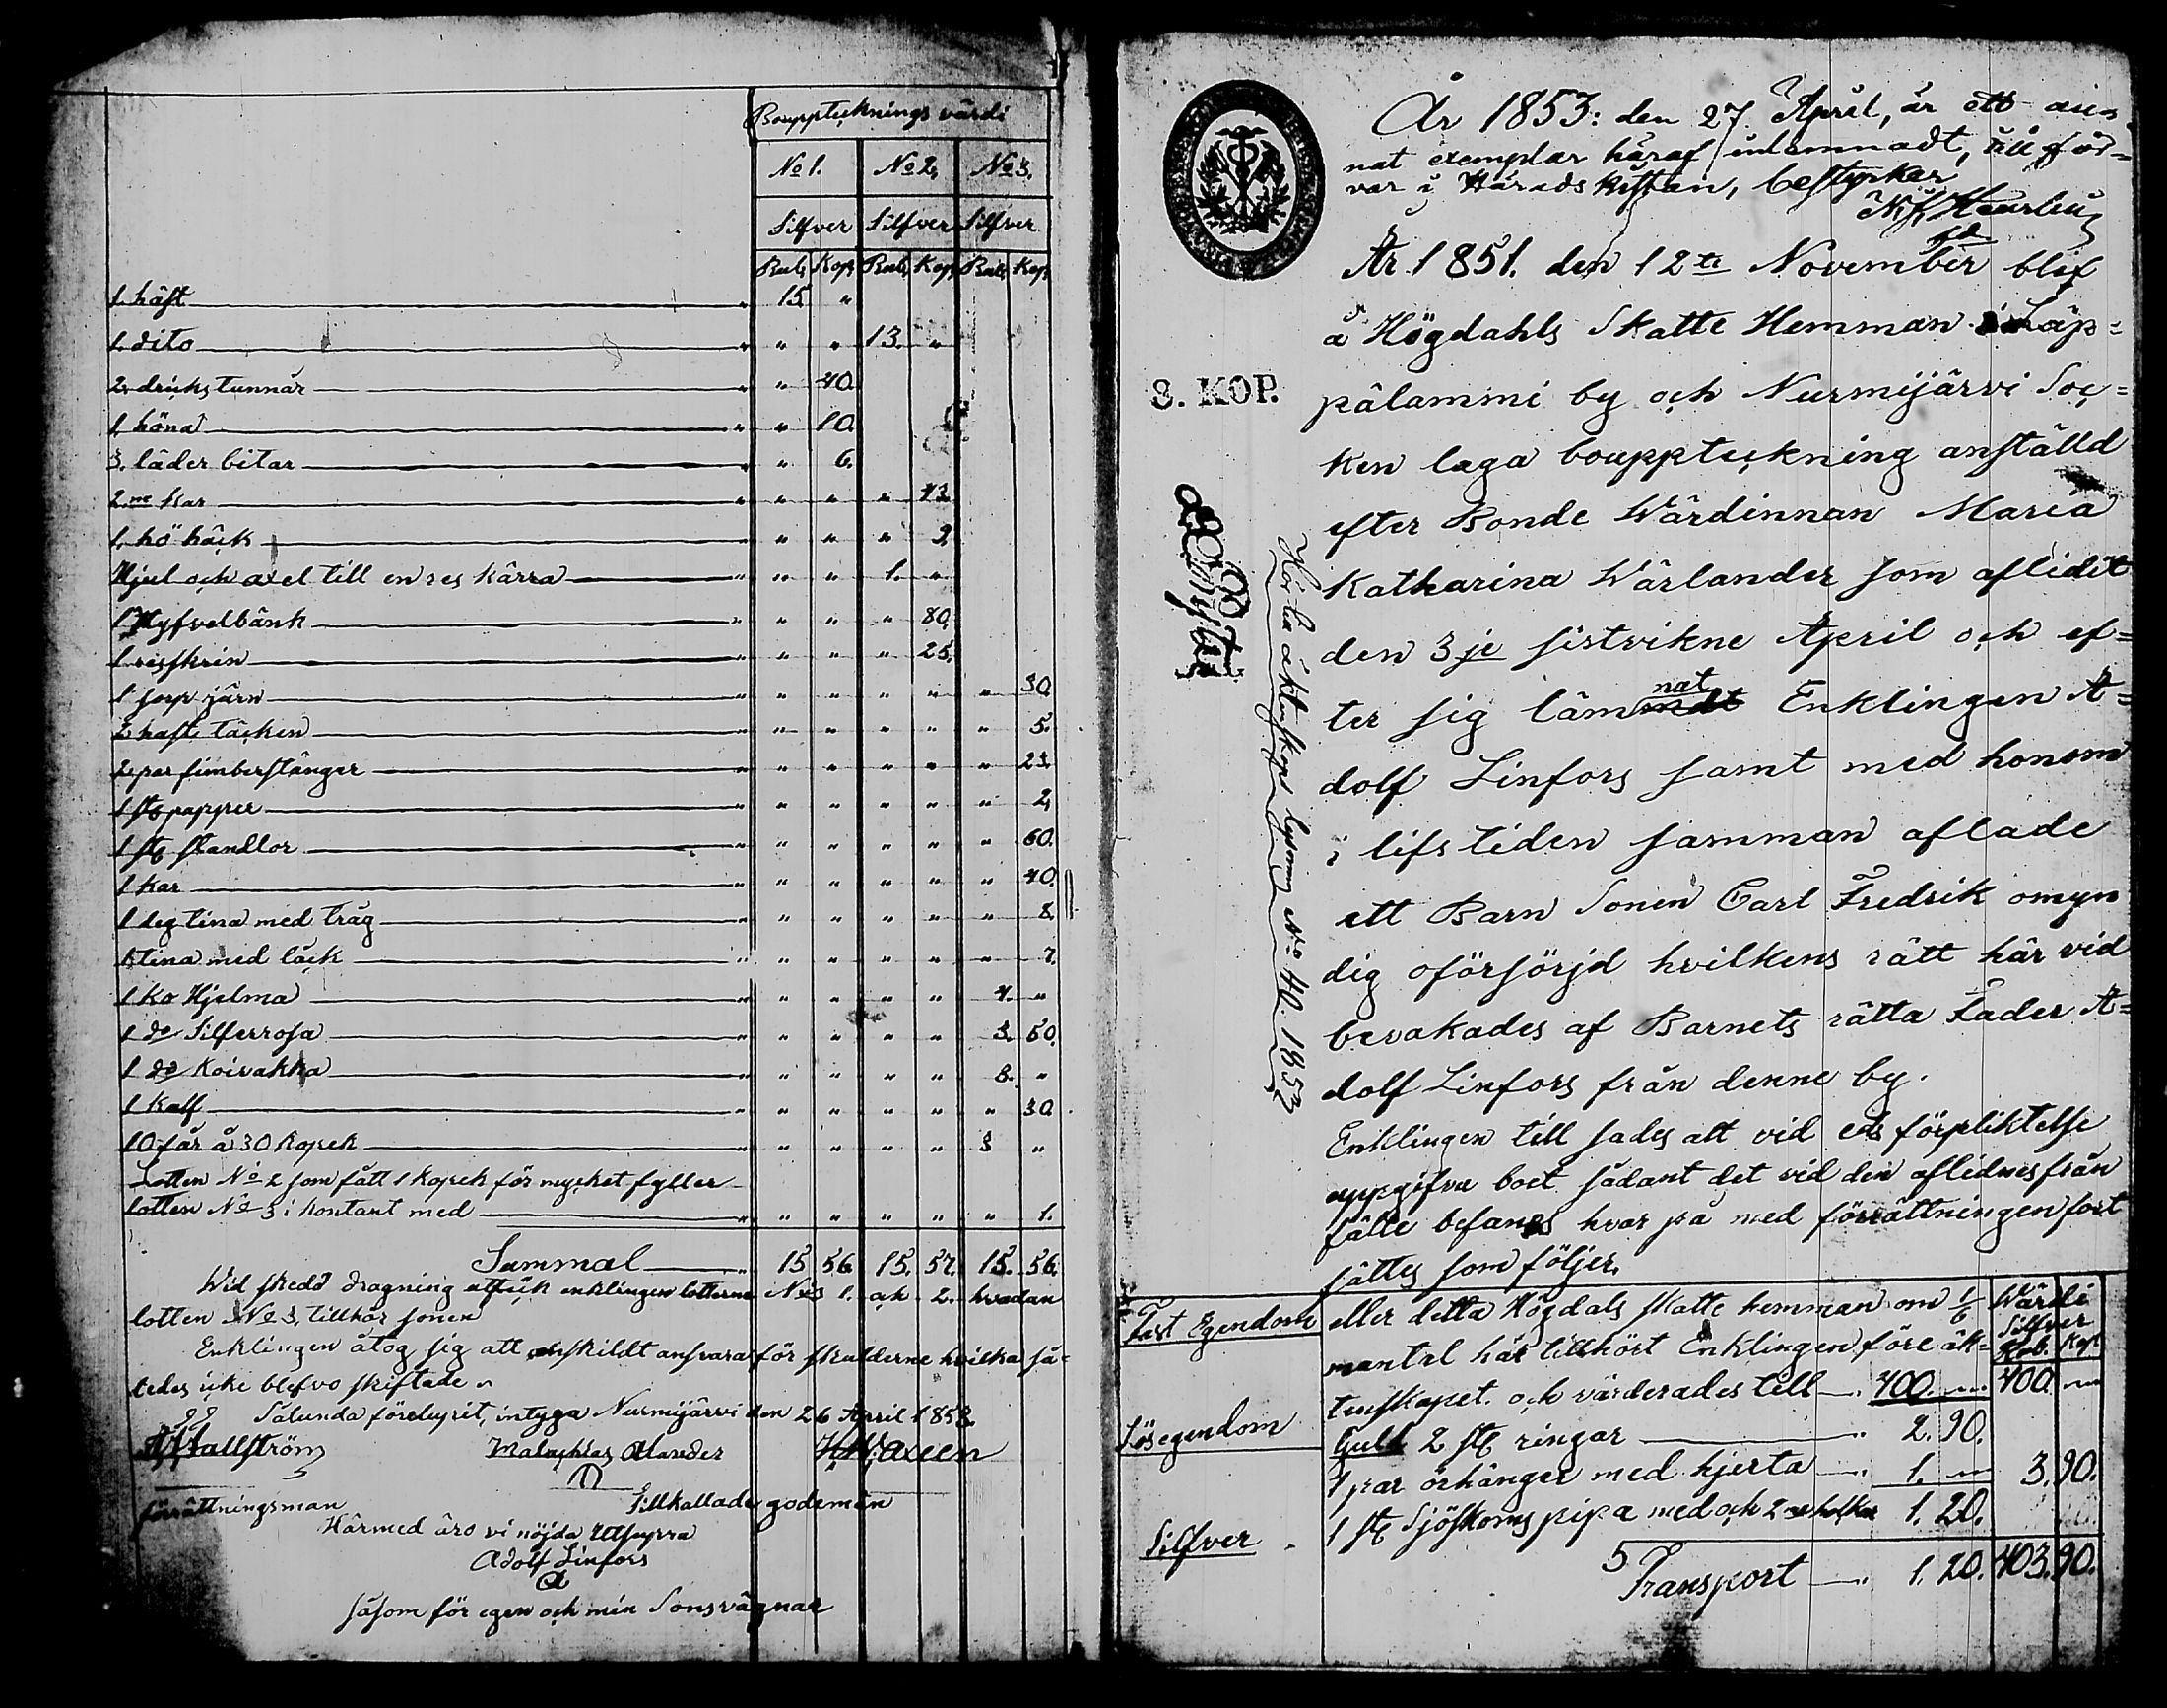 Bouppteknings värdi
No 1. No 2. No 3.
Silfver Silfver Silfver
Rub. Kop. Rub. Kop. Rub. Kop.
1 häst " 15. "
1. dito " " " 13. "
2. dricks tunnar " " 40.
1. höna " " 10.
3. läder bitar " " 6.
2ne kar " " " " 43.
1. hö häck " " " " 9.
Hjul och axel till en res kärra " " " 1. "
1 Hyfvelbänk " " " " 80.
1 resskrin " " " " 25.
1 järn " " " " " " 30.
2 häst täcken " " " " " " 5.
2. par " " " " " " 23.
1 st papper " " " " " " 2.
1 st " " " " " " 60.
1 kar " " " " " " 40.
1 deg tina med tråg " " " " " " 8.
1 tina med läck " " " " " " 7.
1 ko Hjelma " " " " " 4. "
1 do Silferrosa " " " " " 3. 50.
1 do Koivakka " " " " " 3. "
1 Kalf " " " " " " 30.
10 får å 30 Kopek " " " " " 3 "
Lotten No 2 som fått 1 kopek för mycket fyller
lotten No 3 i kontant med " " " " " " 1.
Summal " 15 56. 15. 57. 15. 56.
Wid skedd dragning utfick enklingen lotterne N:is 1. och 2. hvadan
lotten No 3. tillkör sonen
Enklingen åtog sig att enskildt ansvara för skulderne hvilka så-
ledes icke blefvo skiftade.
Sålunda förelupit, intyga Nurmijärvi den 26 April 1853.
Hallström Malachias Alander
förrättningsman Tillkallade godemän
Härmed äro vi nöjda
Adolf Linfors
såsom för egen och min Sons vägnar
År 1853: den 27 April, är ett an-
nat exemplar häraf inlemnadt, till för-
var i Härads kistan, bestyrker
År 1851. den 12te November blef
å Högdahls Skatte Hemman i Läp-
pälammi by och Nurmijärvi Soc-
ken laga bouppteckning anstäld
8. KOP.
efter Bonde Wärdinnan Maria
Katharina Wärlander som aflidit
den 3je sistvikne April och ef-
ter sig lämnat Enklingen A-
dolf Linfors samt med honom
i lifs tiden samman aflade
ett Barn Sonen Carl Fredrik omyn
dig oförsörjd hvilkens rätt här vid
bevakades af Barnets rätta Fader A-
dolf Linfors från denne by.
Enklingen till sades att vid eds förpliktelse
uppgifva boet sådant det vid den aflidnes från
fälle befanns hvar på med förrättningen fort
sättes som följer.
Hör till äktenskaps lysning No 40. 1853
Fast Egendom eller detta Högdals skatte hemman om 1/6 Wärdi
Silfver
Rub. Kop.
mantal har tillhört Enklingen före äk-
tenskapet. och värderades till " 400. " 400. "
Lösegendom
Guld 2 st ringar " 2. 90.
1 par örhänger med hjerta " 1. " 3. 90.
Silfver . 1 st Sjöskoms pipa med och 2 1. 20.
Transport " 1. 20. 403. 90.